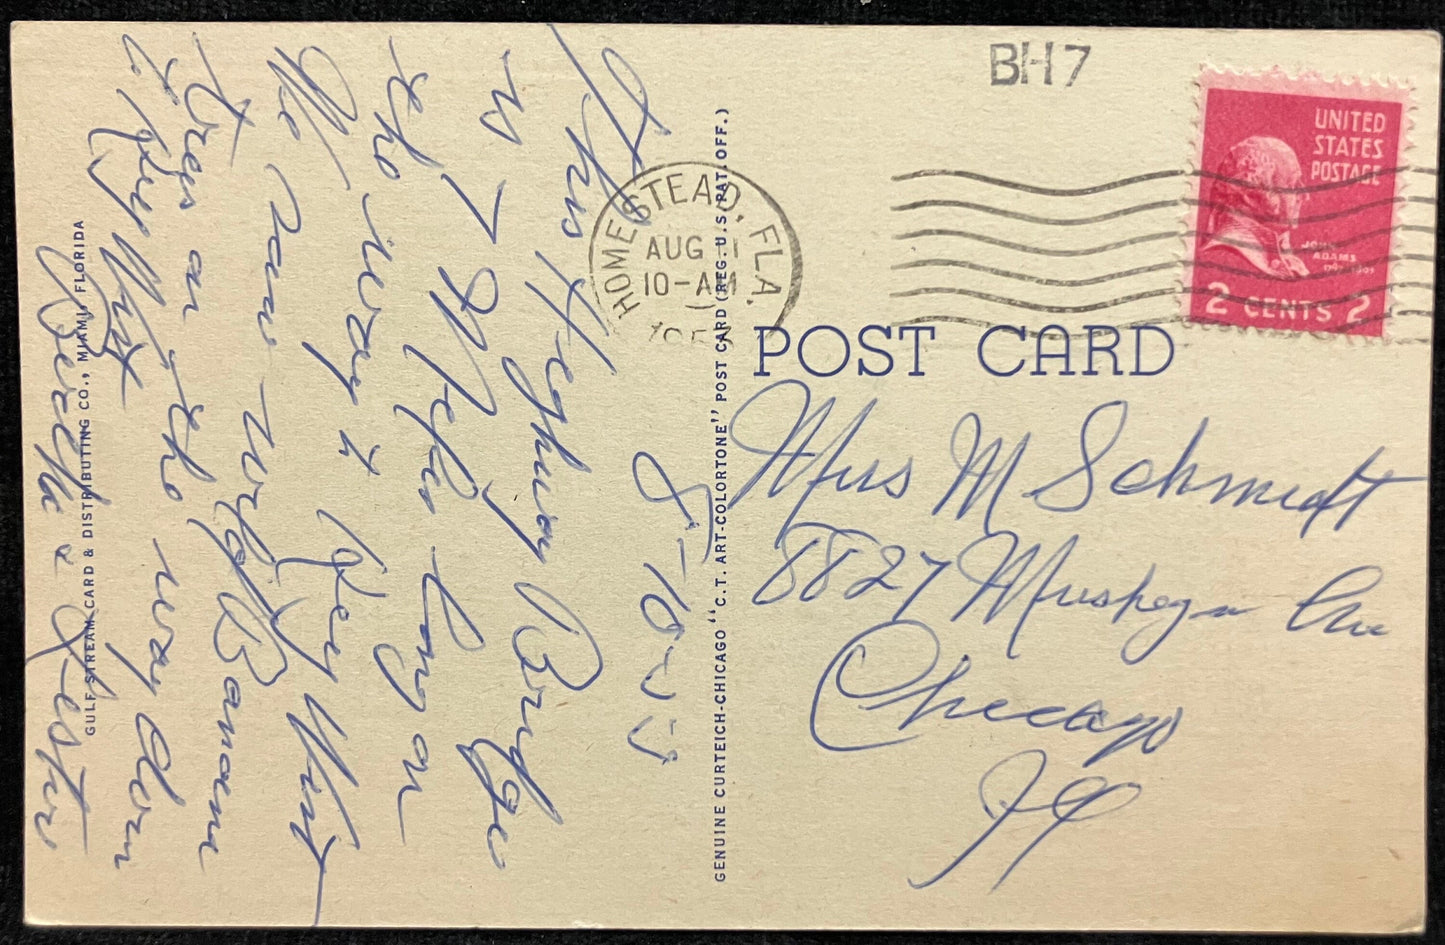 BH7
UNITED
STATES
POSTAGE
JOHN
ADAMS
2 CENTS 2
HOMESTEAD, FLA.
AUG 11
10-AM
POST CARD
8-10-55
This Highway Bridge
is 7 Miles long on
the way to Key West
We saw wild Banana
trees on the way down
to Key West
Lester
Mrs M Schmidt
8827 Muskegon Ave
Chicago
Ill
GENUINE CURTEICH-CHICAGO "C.T. ART-COLORTONE" POST CARD (REG. U.S. PAT. OFF.)
GULF STREAM CARD & DISTRIBUTING CO., MIAMI, FLORIDA